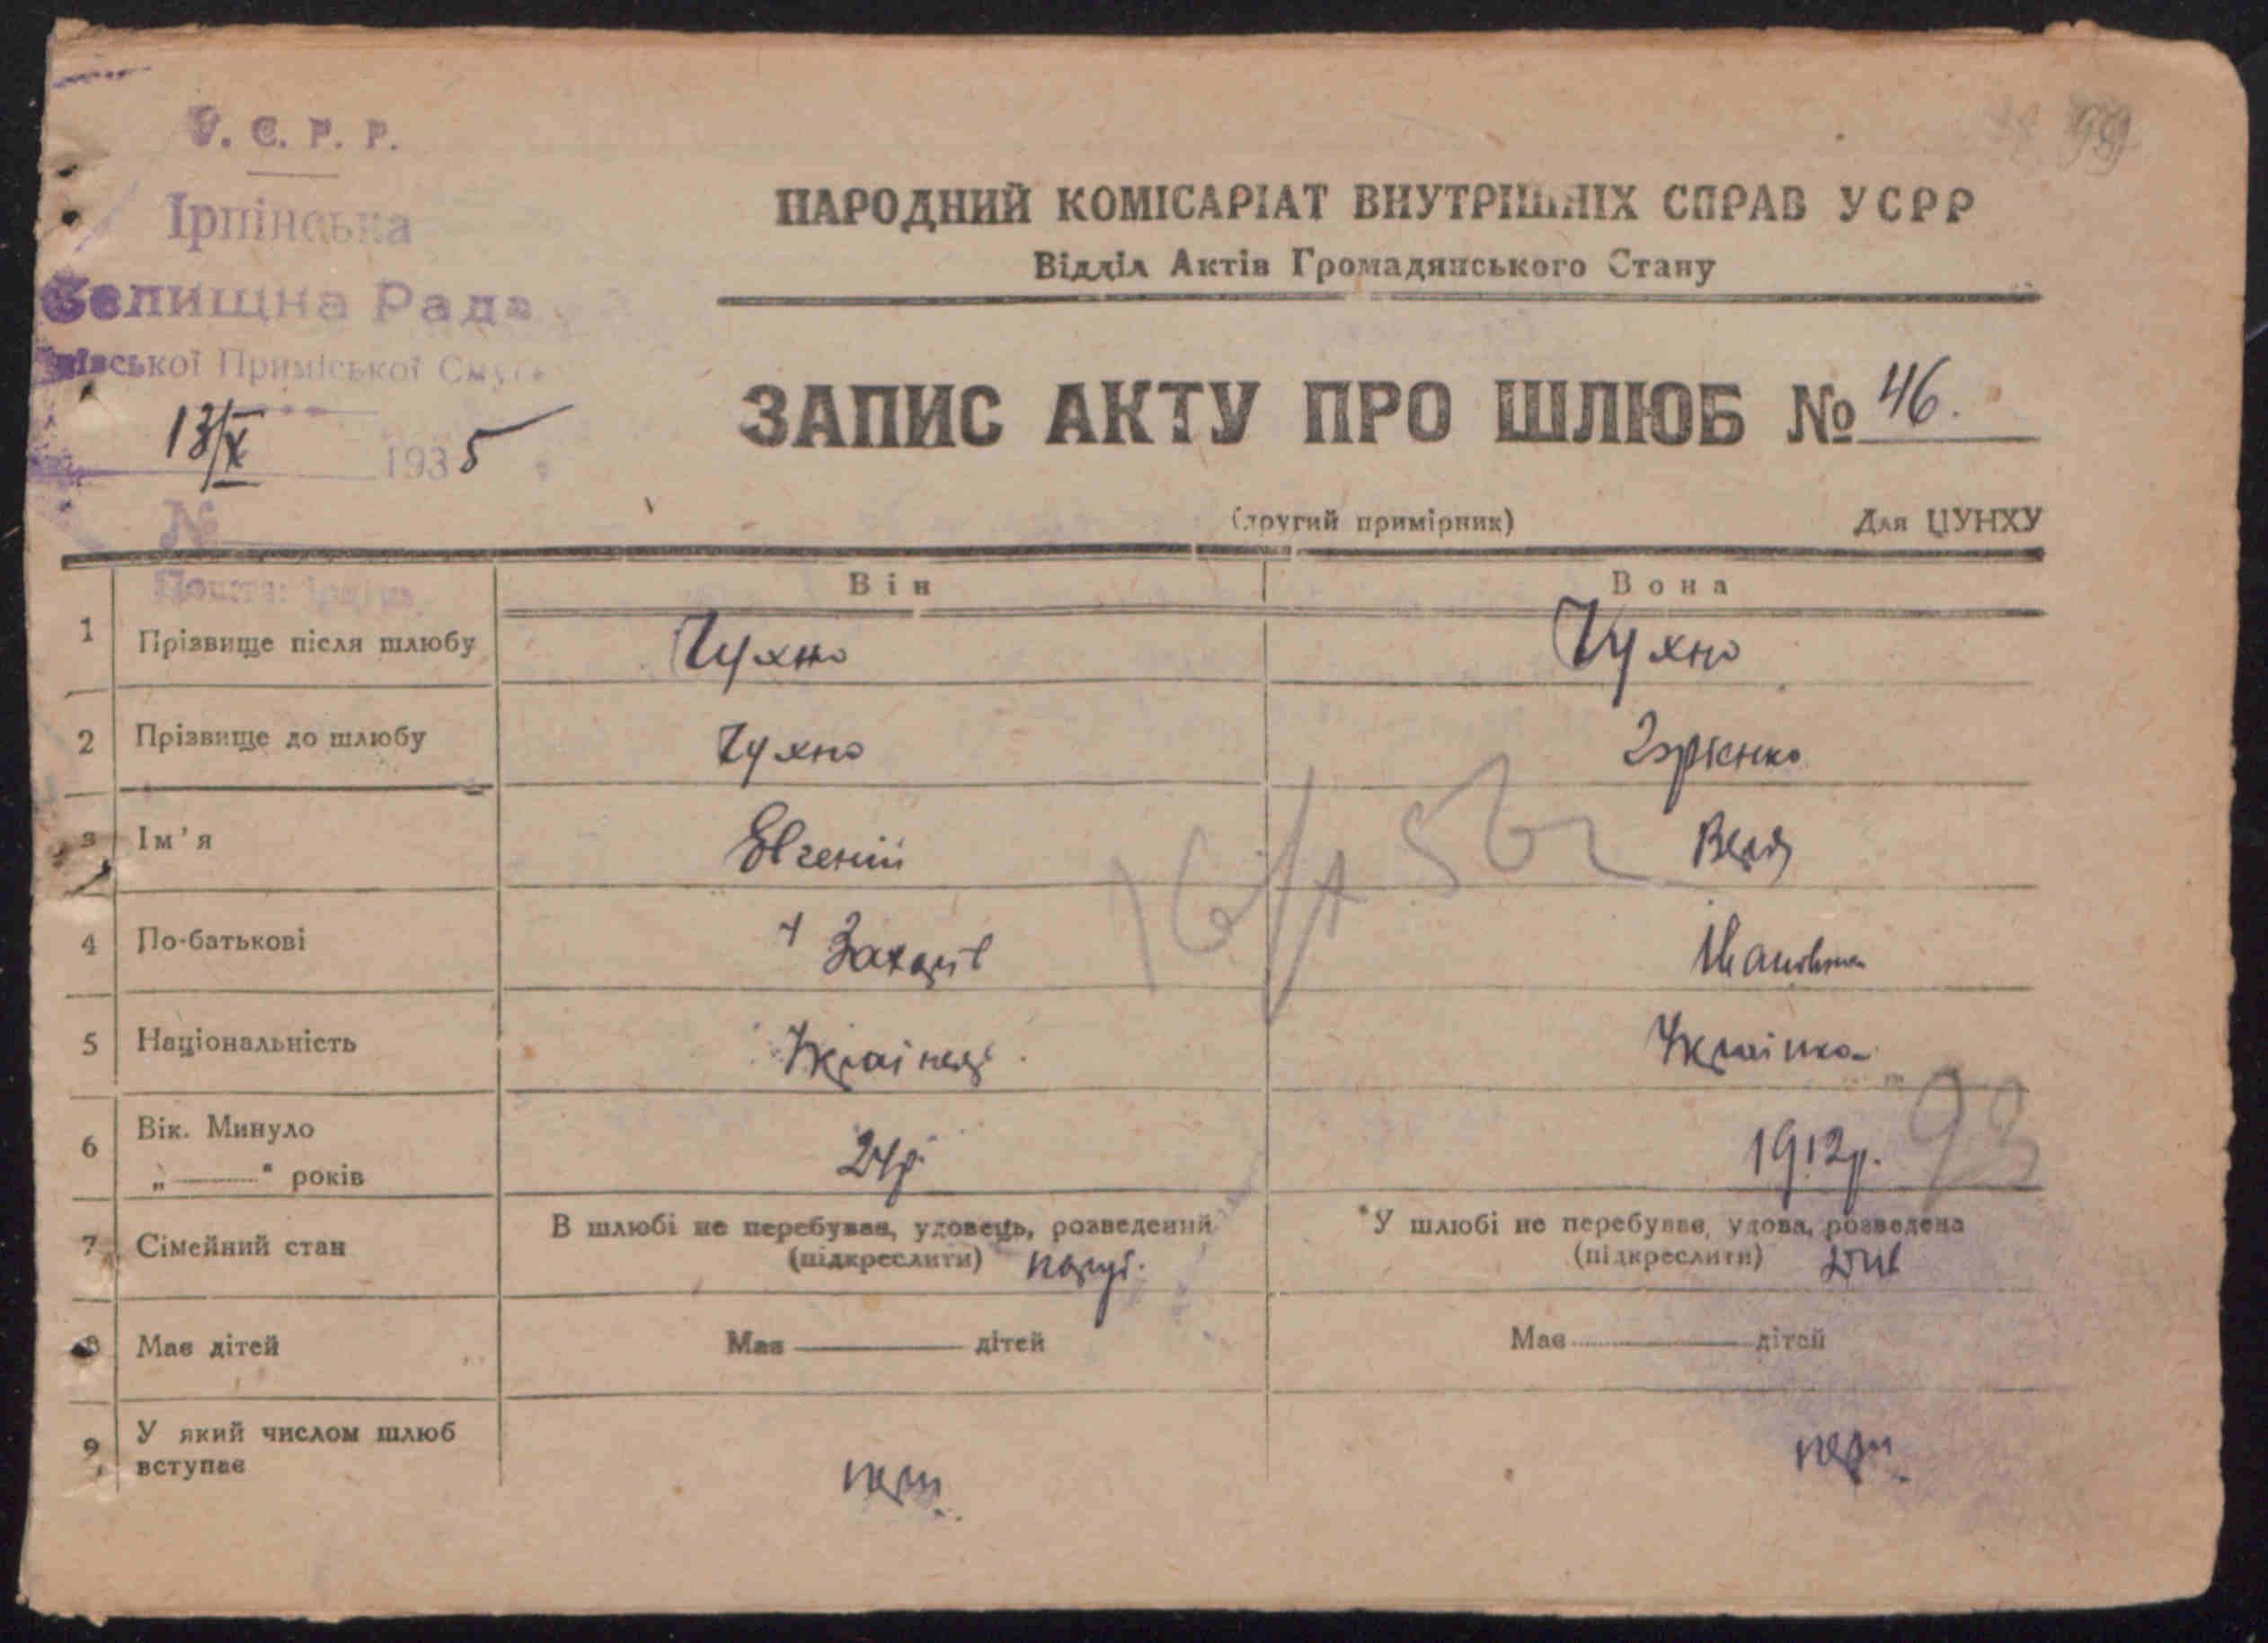 У. С. Р. Р.
Ірпінська
Селищна Рада
Київської Приміської Смуги
13/X 1935
№
Пошта: Ірпінь
99
НАРОДНИЙ КОМІСАРІАТ ВНУТРІШНІХ СПРАВ УСРР
Відділ Актів Громадянського Стану
ЗАПИС АКТУ ПРО ШЛЮБ № 46.
(другий примірник) Для ЦУНХУ
Він Вона
1 Прізвище після шлюбу Чухно Чухно
2 Прізвище до шлюбу Чухно
3 Ім'я Евгеній Вера
4 По-батькові Захарів Ивановна
5 Національність Українець Українка
6 Вік. Минуло
„ “ років 24р. 1912р. 93
7 Сімейний стан В шлюбі не перебував, удовець, розведений У шлюбі не перебувве, удова, розведена
(підкреслити) (підкреслити)
8 Має дітей Має дітей Має дітей
9 У який числом шлюб
вступає перш. перш.